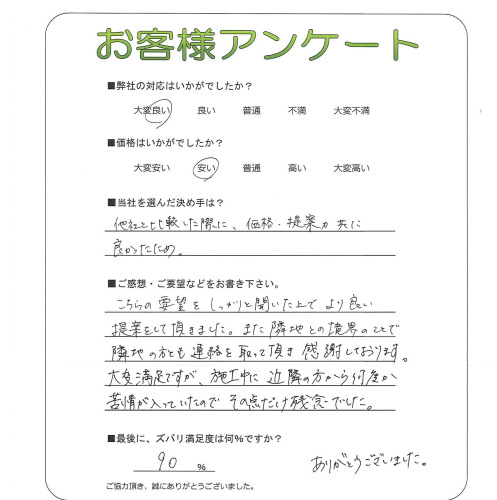 お客様アンケート
■弊社の対応はいかがでしたか？
大変良い 良い 普通 不満 大変不満
■価格はいかがでしたか？
大変安い 安い 普通 高い 大変高い
■当社を選んだ決め手は？
他社と比較した際に、価格・提案力共に
良かったため。
■ご感想・ご要望などをお書き下さい。
こちらの要望をしっかりと聞いた上でより良い
提案をして頂きました。また隣地との境界のことで
隣地の方とも連絡を取って頂き感謝しております。
大変満足ですが、施工中に近隣の方から何度か
苦情が入っていたのでその点だけ残念でした。
■最後に、ズバリ満足度は何%ですか？
90 %
ありがとうございました。
ご協力頂き、誠にありがとうございました。